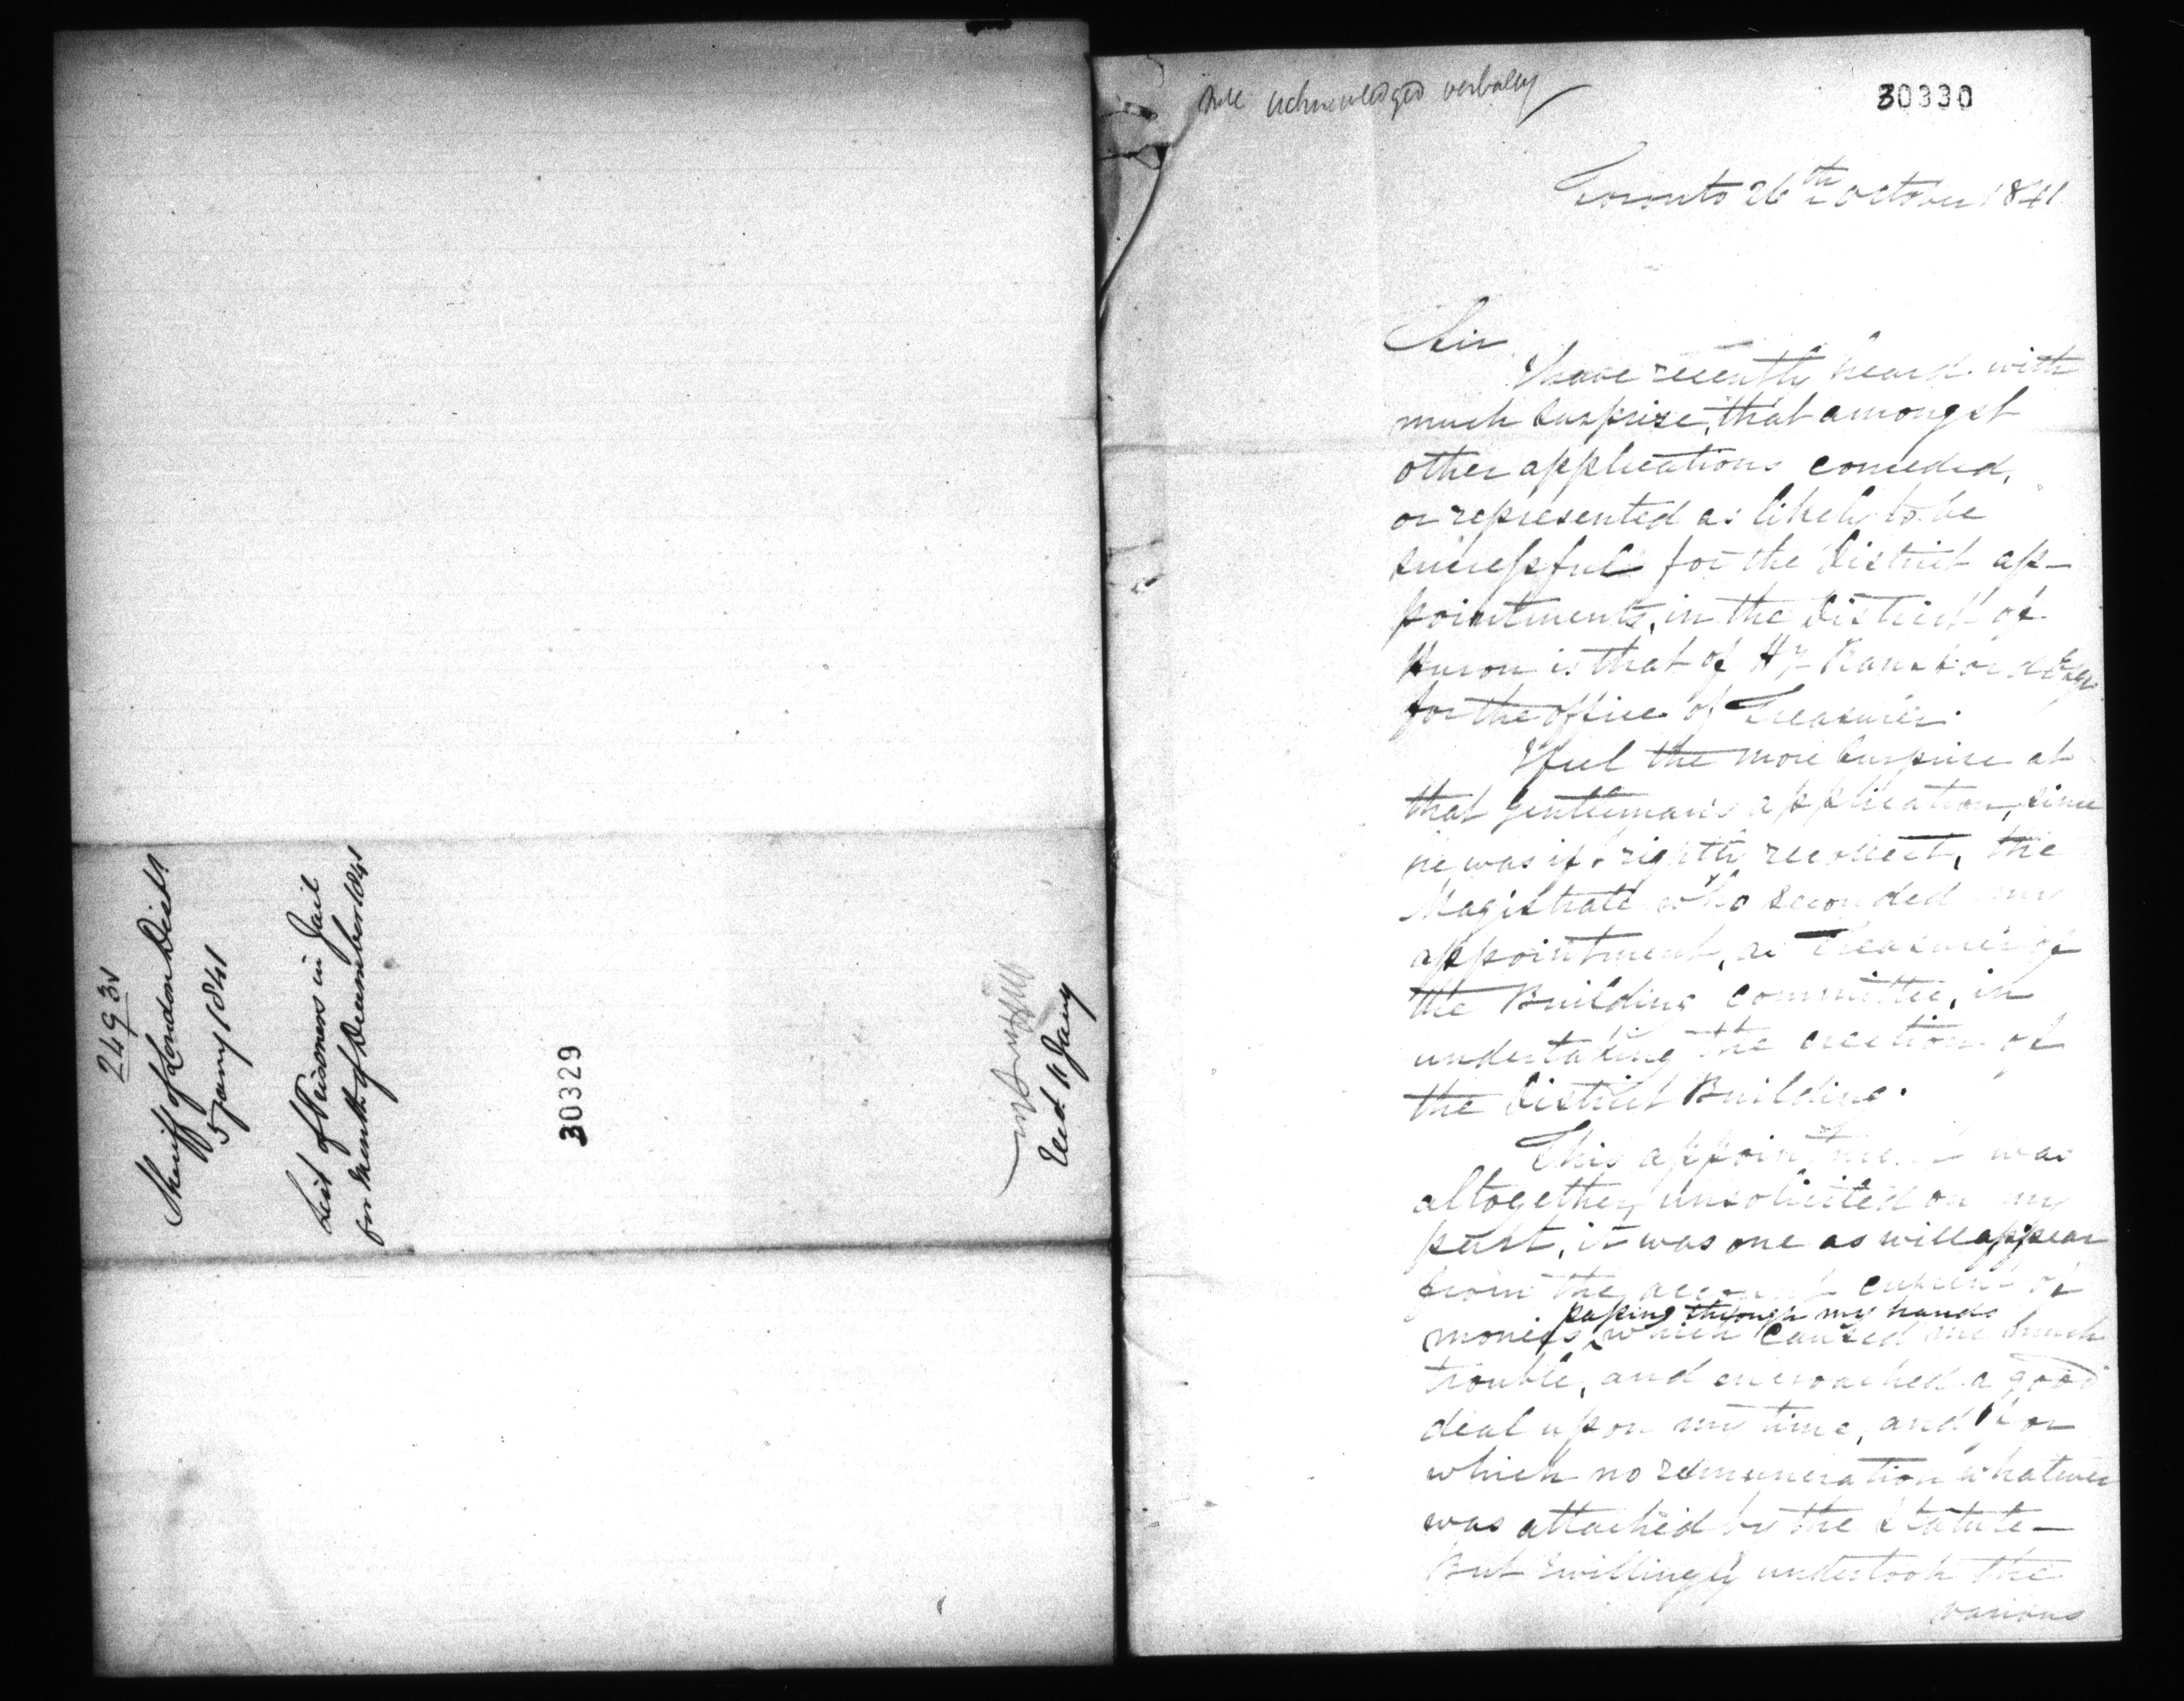 2493v
Sheriff of London Distt
5 Jany 1841
List of Prisoners in Jail
for Month of December 1841
30329
Recd 11 Jany
acknowledged verbally
30330
Toronto 26th October 1841
Sir
I have recently heard with
much surprise, that amongst
other applications conceded,
or represented as likely to be
successful for the District ap-
pointments, in the District of
Huron is that of H Z Ransford Esqr
for the office of Treasurer.
I feel the more surprise at
that gentlemans application, since
he was if I rightly recollect, the
Magistrate who seconded my
appointment, as Treasurer of
the Building committee, in
undertaking the erection of
the District Building.
This appointment was
altogether unsolicited on my
part, it was one as will appear
from the account current of
passing through my hands
monies, which caused me much
trouble, and encroached a good
deal upon my time, and for
which no remuneration whatever
was attached by the Statute—
But I willingly undertook the
various